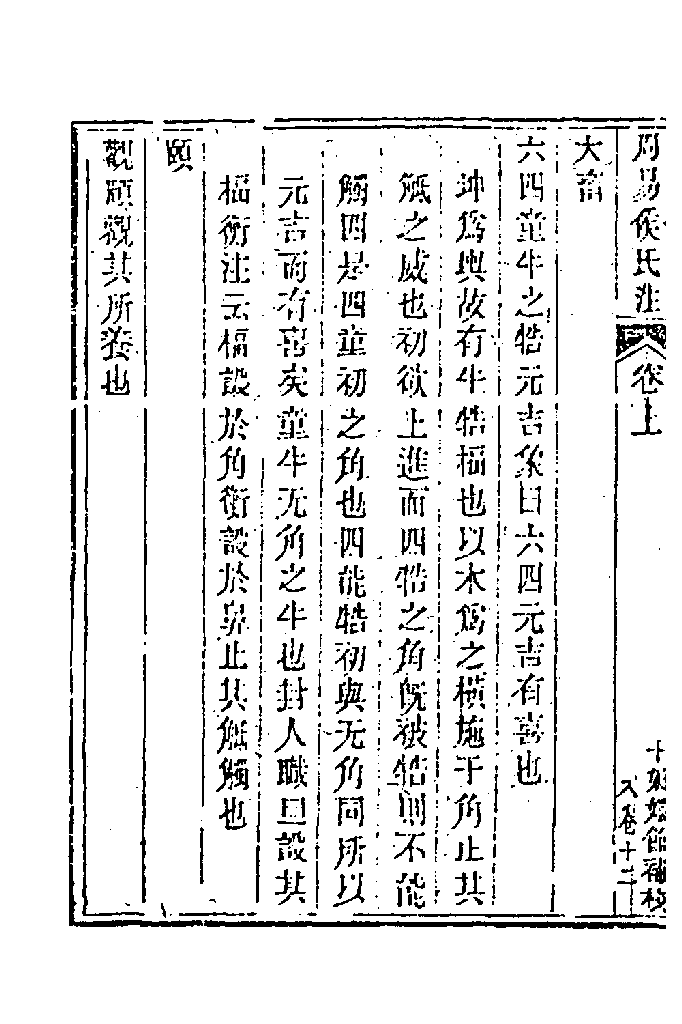 周易侯氏注 卷上
大畜
六四童牛之牿元吉象曰六四元吉有喜也
坤爲輿故有牛牿楅也以木爲之橫施于角止其
觝之威也初欲上進而四牿之角旣被牿則不能
觸四是四童初之角也四能牿初與无角同所以
元吉而有喜矣童牛无角之牛也封人職曰設其
楅衡注云楅設於角衡設於鼻止其觝觸也
頤
觀頤觀其所養也